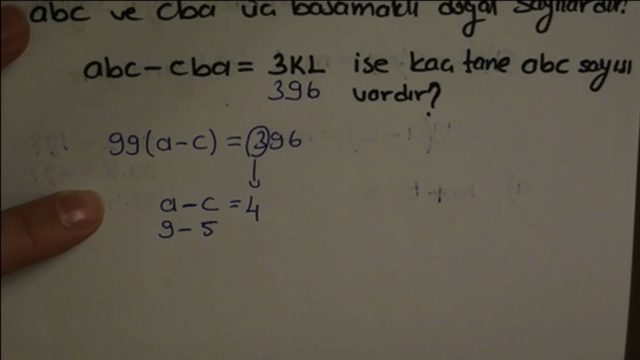 abc ve cba üç basamaklı doğal sayılardır.
abc - cba = 3KL ise kaç tane abc sayısı
396 vardır?
99(a-c) = 396
a-c = 4
9-5